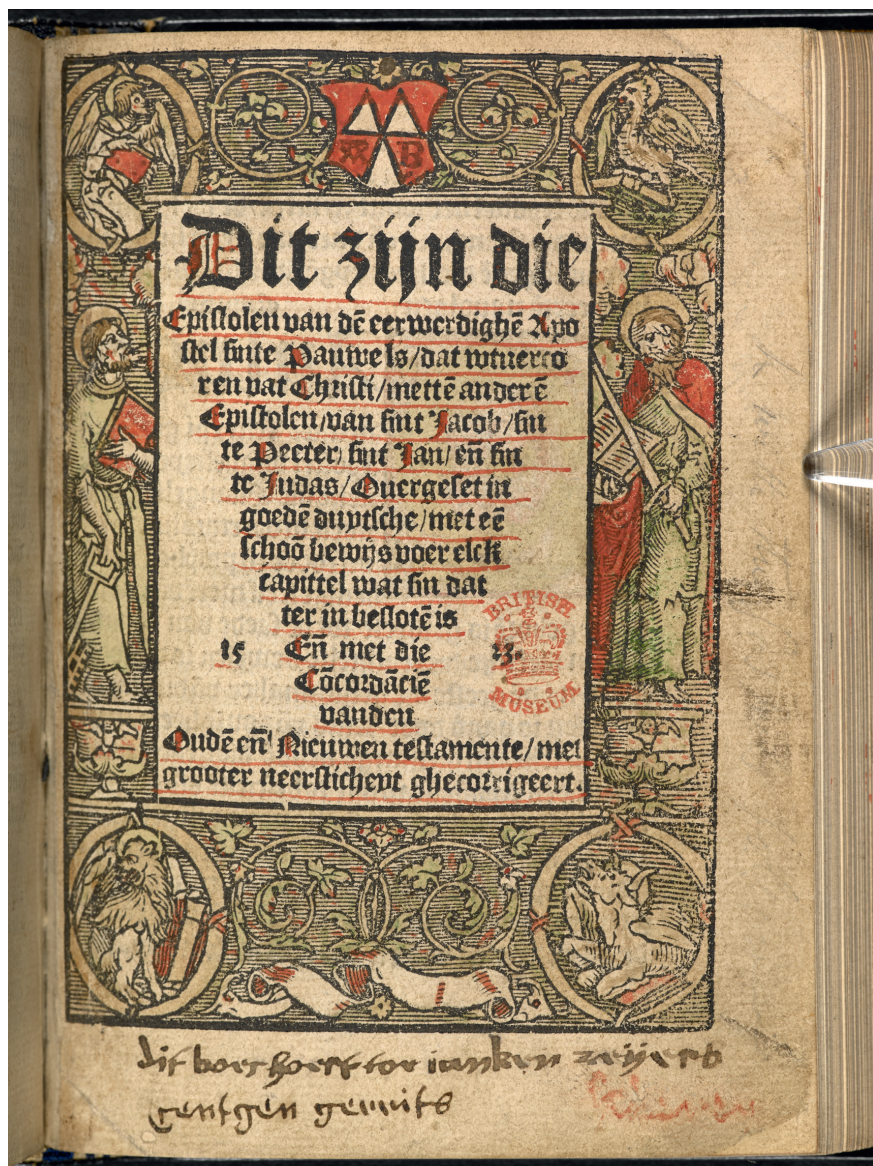 B
Dit zijn die
Epistolen van dē eerwerdighē Apo
stel sinte Pauwels/dat wtuerco
ren vat Christi/mettē anderē
Epistolen/van sint Jacob/sin
te Peeter/sint Jan/eñ sin
te Judas/Ouergeset in
goedē duytsche/met eē
schoō bewijs voer elck
capittel wat sin dat
ter in beslotē is
15 Eñ met die 23.
Cōcordāciē
vanden
Oudē eñ Nieuwen testamente/met
grooter neersticheyt ghecorrigeert.
BRITISH
MUSEUM
dit boec hoert toe
gerrits